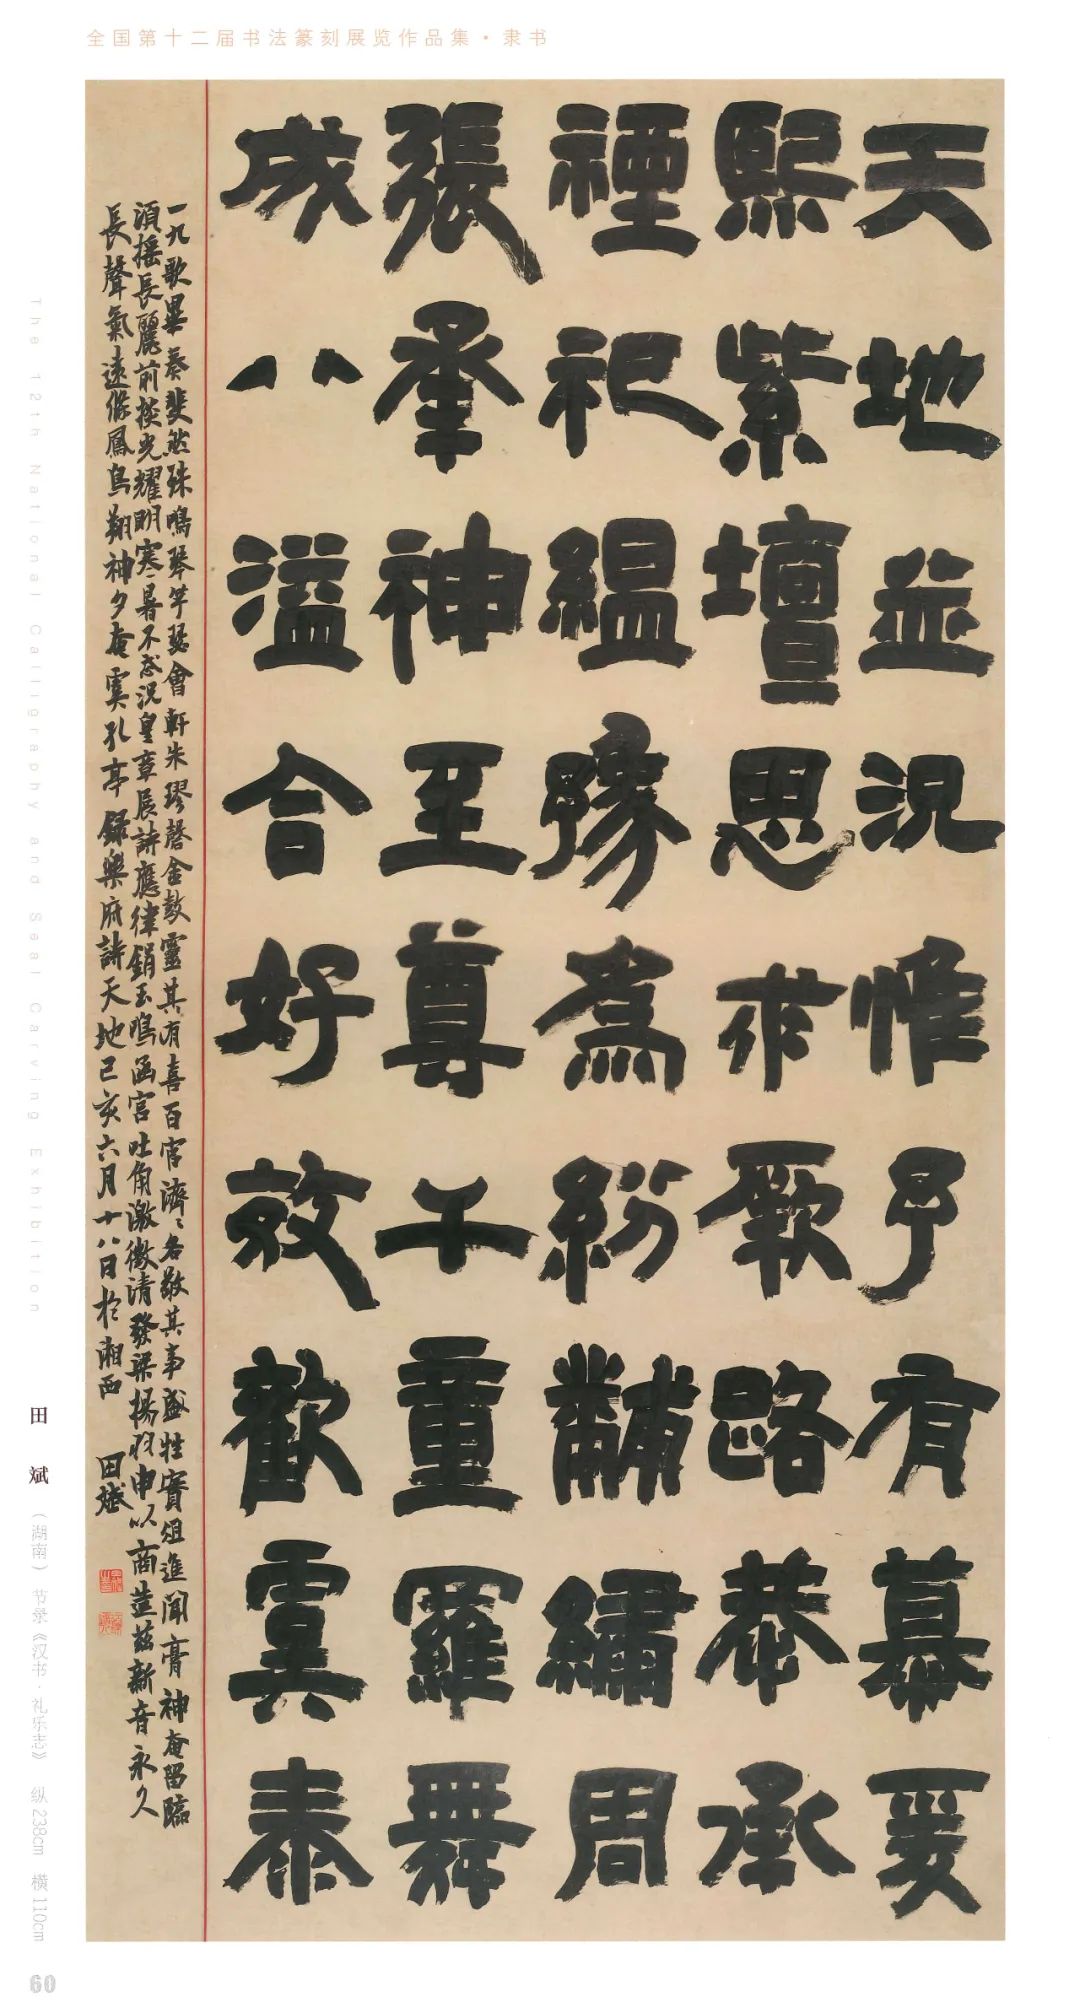 全国第十二届书法篆刻展览作品集·隶书
天地並況惟予有慕爰
熙紫壇思求厥路恭承
禋祀縕豫為紛黼繡周
張承神至尊千童羅舞
成八溢合好效歡虞泰
一九歌畢奏斐然殊鳴琴竽瑟會軒朱璆磬金鼓靈其有喜百官濟〻各敬其事盛牲實俎進聞膏神奄留臨
須搖長麗前掞光耀明寒〻暑不忒況皇章展詩應律鋗玉鳴函宮吐角激徵清發梁揚羽申以商茲新音永久
長聲氣遠條鳳鳥翔神夕奄虞孔亭錄樂府詩天地己亥六月十八日於湘西 田斌
The 12th National Calligraphy and Seal Carving Exhibition
田 斌 (湖南) 节录《汉书·礼乐志》 纵238cm 横110cm
60